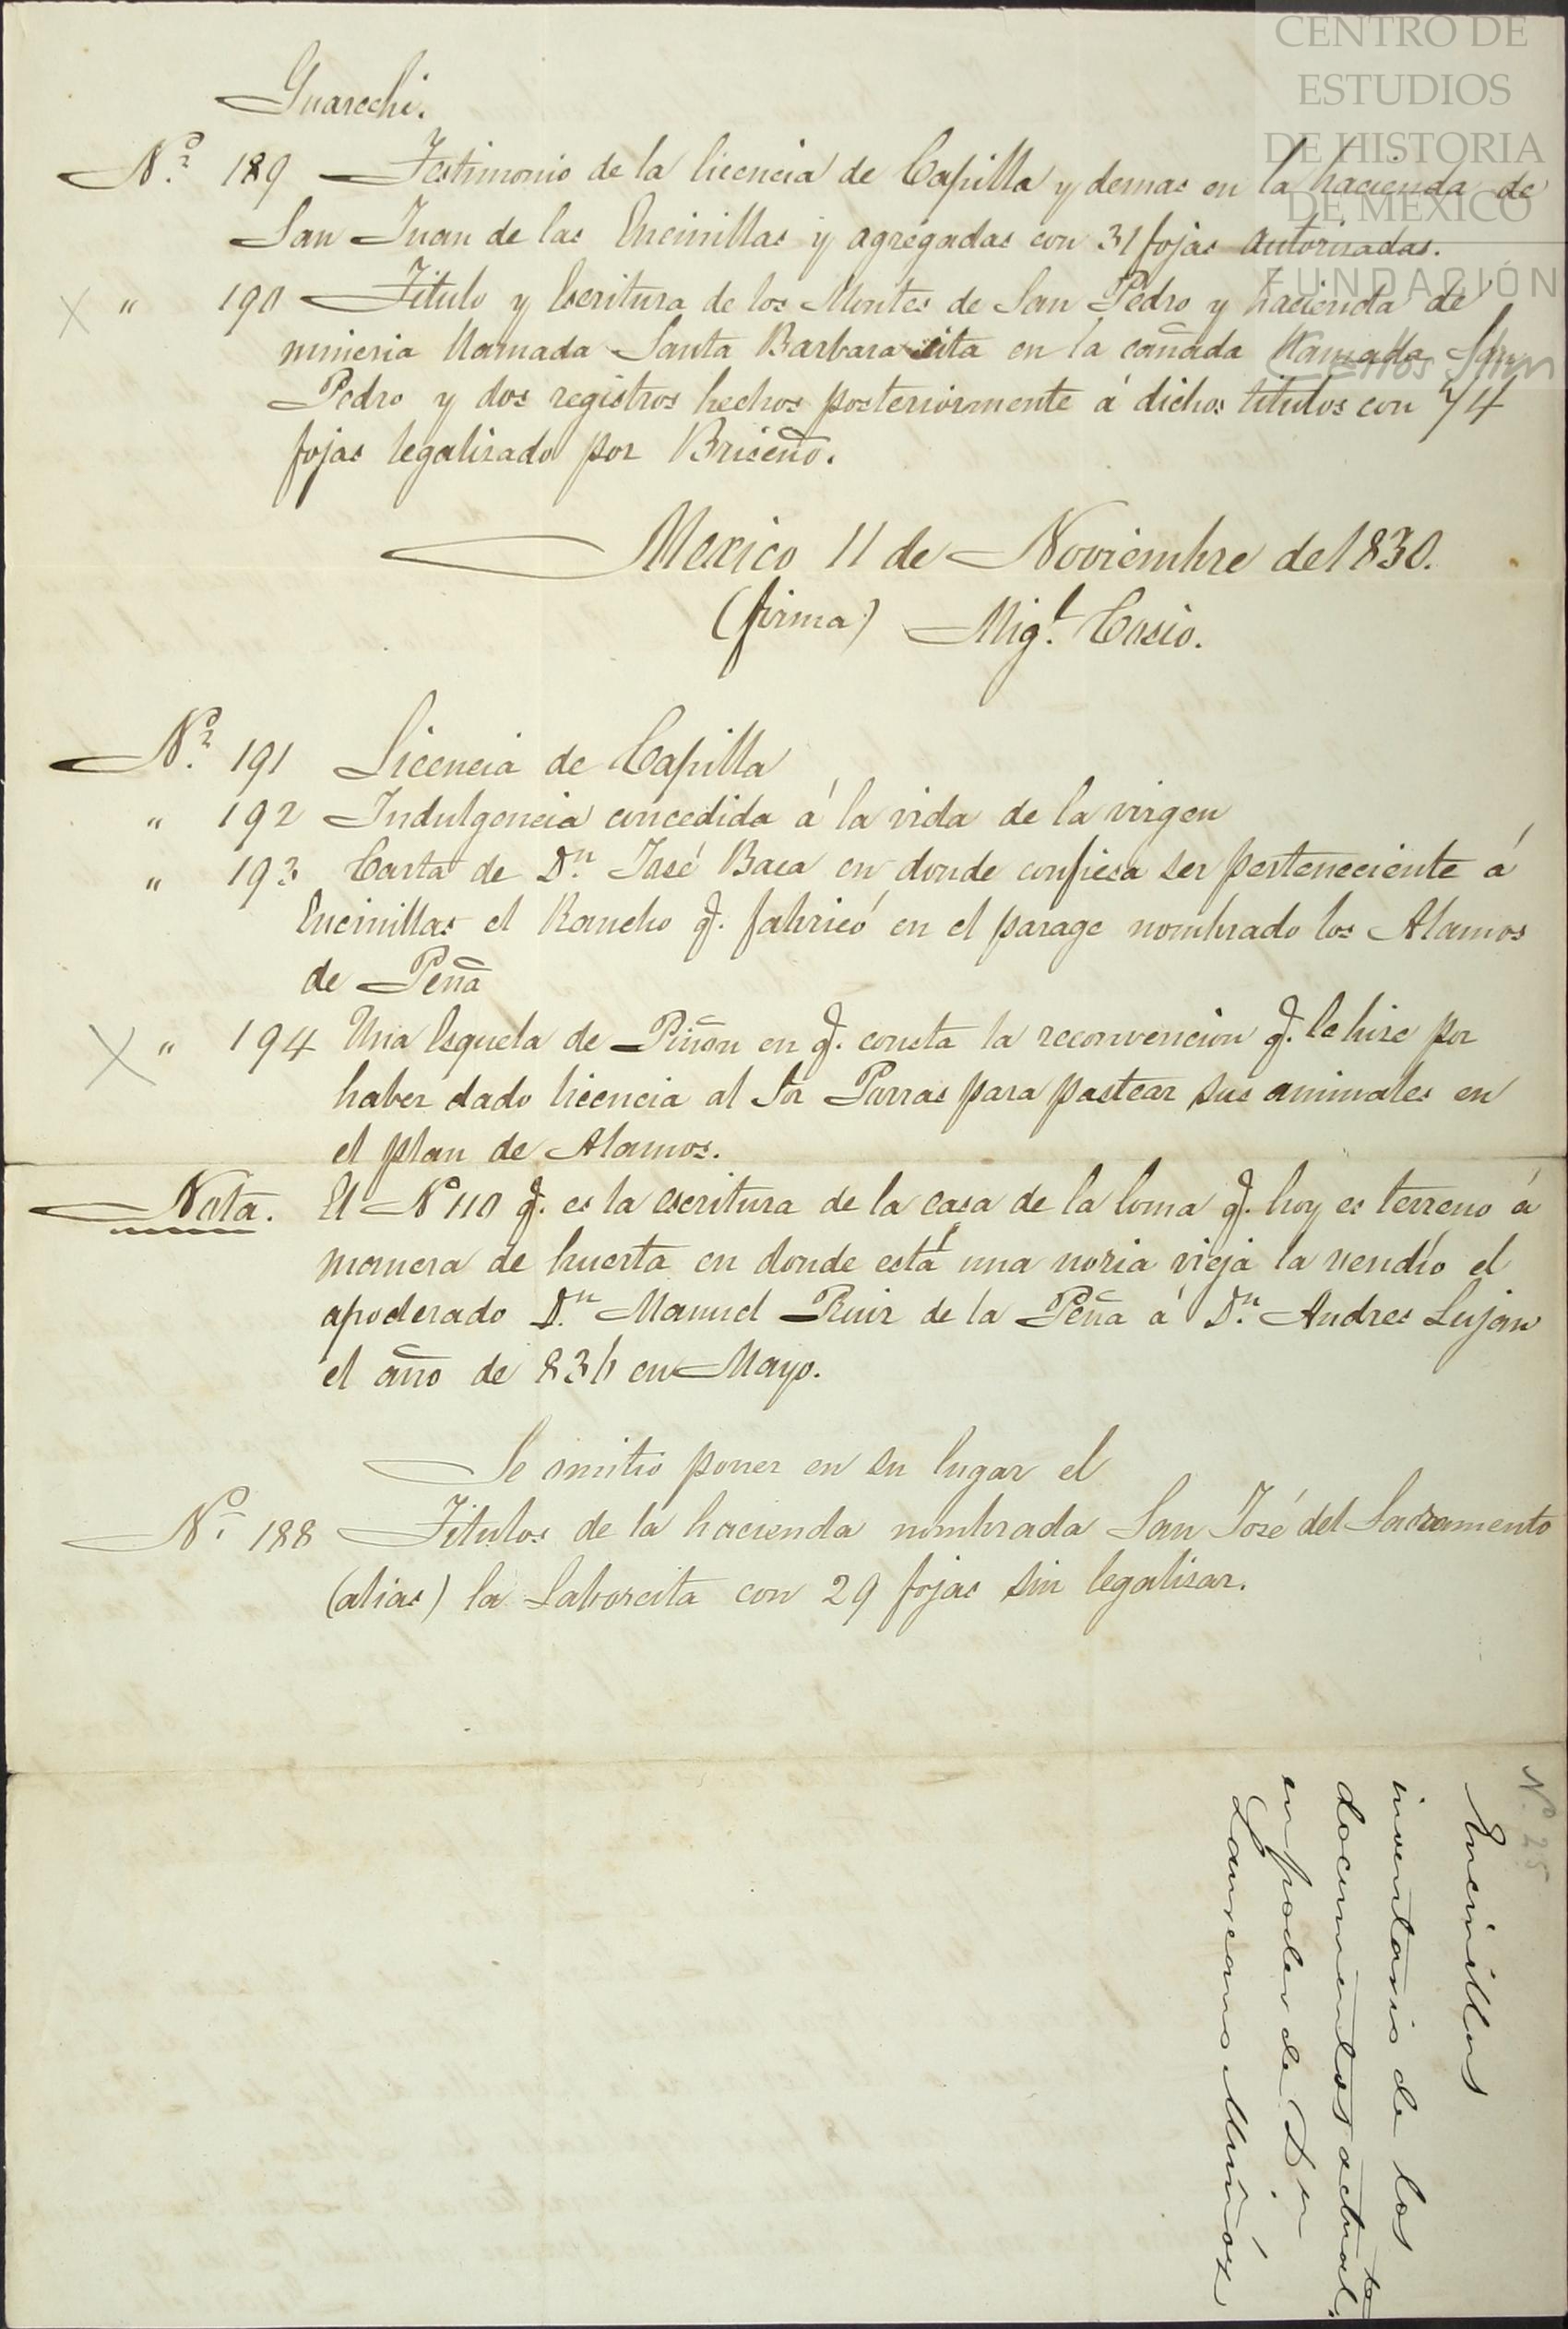 CENTRO DE
ESTUDIOS
DE HISTORIA
DE MEXICO
FUNDACIÓN
Carlos Slim
Guarachi.
N.º 189 Testimonio de la licencia de Capilla y demas en la hacienda de
San Juan de las Encinillas y agregadas con 31 fojas autorisadas.
" 190 Titulo y escritura de los Montes de San Pedro y hacienda de
mineria llamada Santa Barbara cita en la cañada llamada San
Pedro y dos registros hechos posteriormente á dichos titulos con 74
fojas legalizado por Briseño.
Mexico 11 de Noviembre de 1830.
(firma) Mig.l Cosio.
N.º 191 Licencia de Capilla
" 192 Indulgencia concedida á la vida de la virgen
" 193 Carta de D.n José Baca en donde confiesa ser perteneciente á
Encinillas el Rancho q. fabricó en el parage nombrado los Alamos
de Peña
" 194 Una esquela de Piñon en q. consta la reconvencion q. le hise por
haber dado licencia al Sor Parras para pastear sus animales en
el plan de Alamos.
Nota. El Nº 110 q. es la escritura de la casa de la loma q. hoy es terreno á
manera de huerta en donde está una noria vieja la vendío el
apoderado D.n Manuel Ruiz de la Peña á D.n Andres Lujan
el año de 836 en Mayo.
Se omitio poner en su lugar el
N.º 188 Titulos de la hacienda nombrada San José del Sacramento
(alias) la Laborcita con 29 fojas sin legalisar.
Nº 25
Encinillas
inventario de los
documentos actual.te
en poder de D.n
Laureano Muñóz